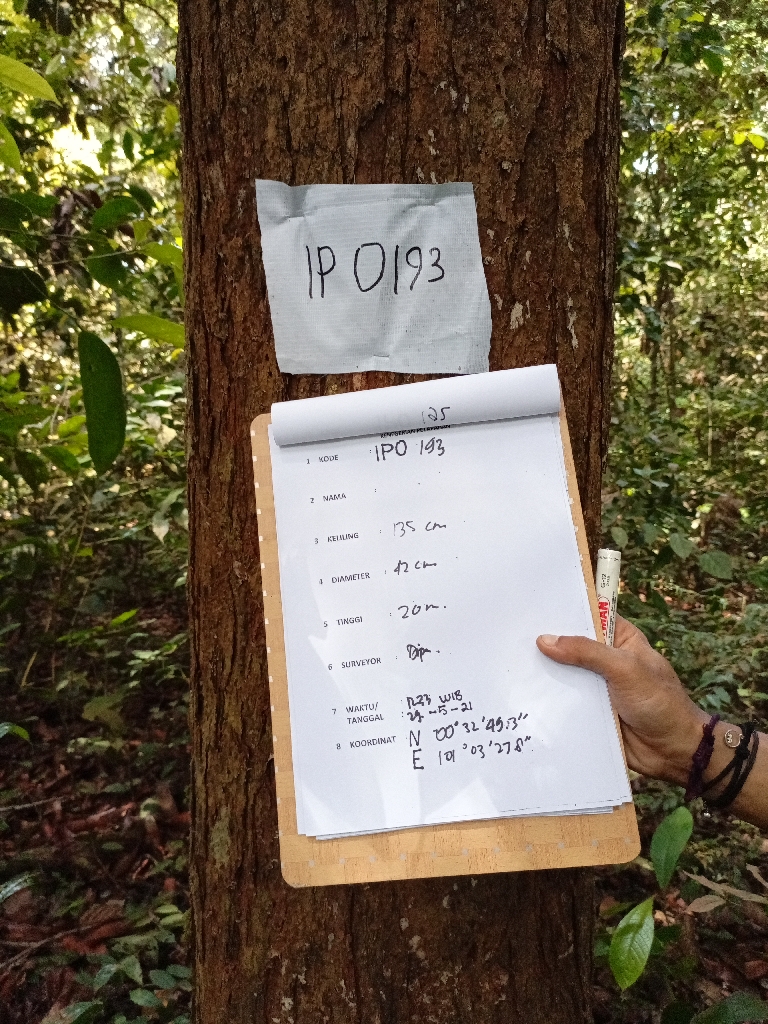 IPO193
125
1 KODE : IPO 193
2 NAMA :
3 KELILING : 135 cm
4 DIAMETER : 42 cm
5 TINGGI : 20 m.
6 SURVEYOR :
7 WAKTU/ TANGGAL : WIB
-5-21
8 KOORDINAT N 00°32'49.3"
E 101°03'27.8"